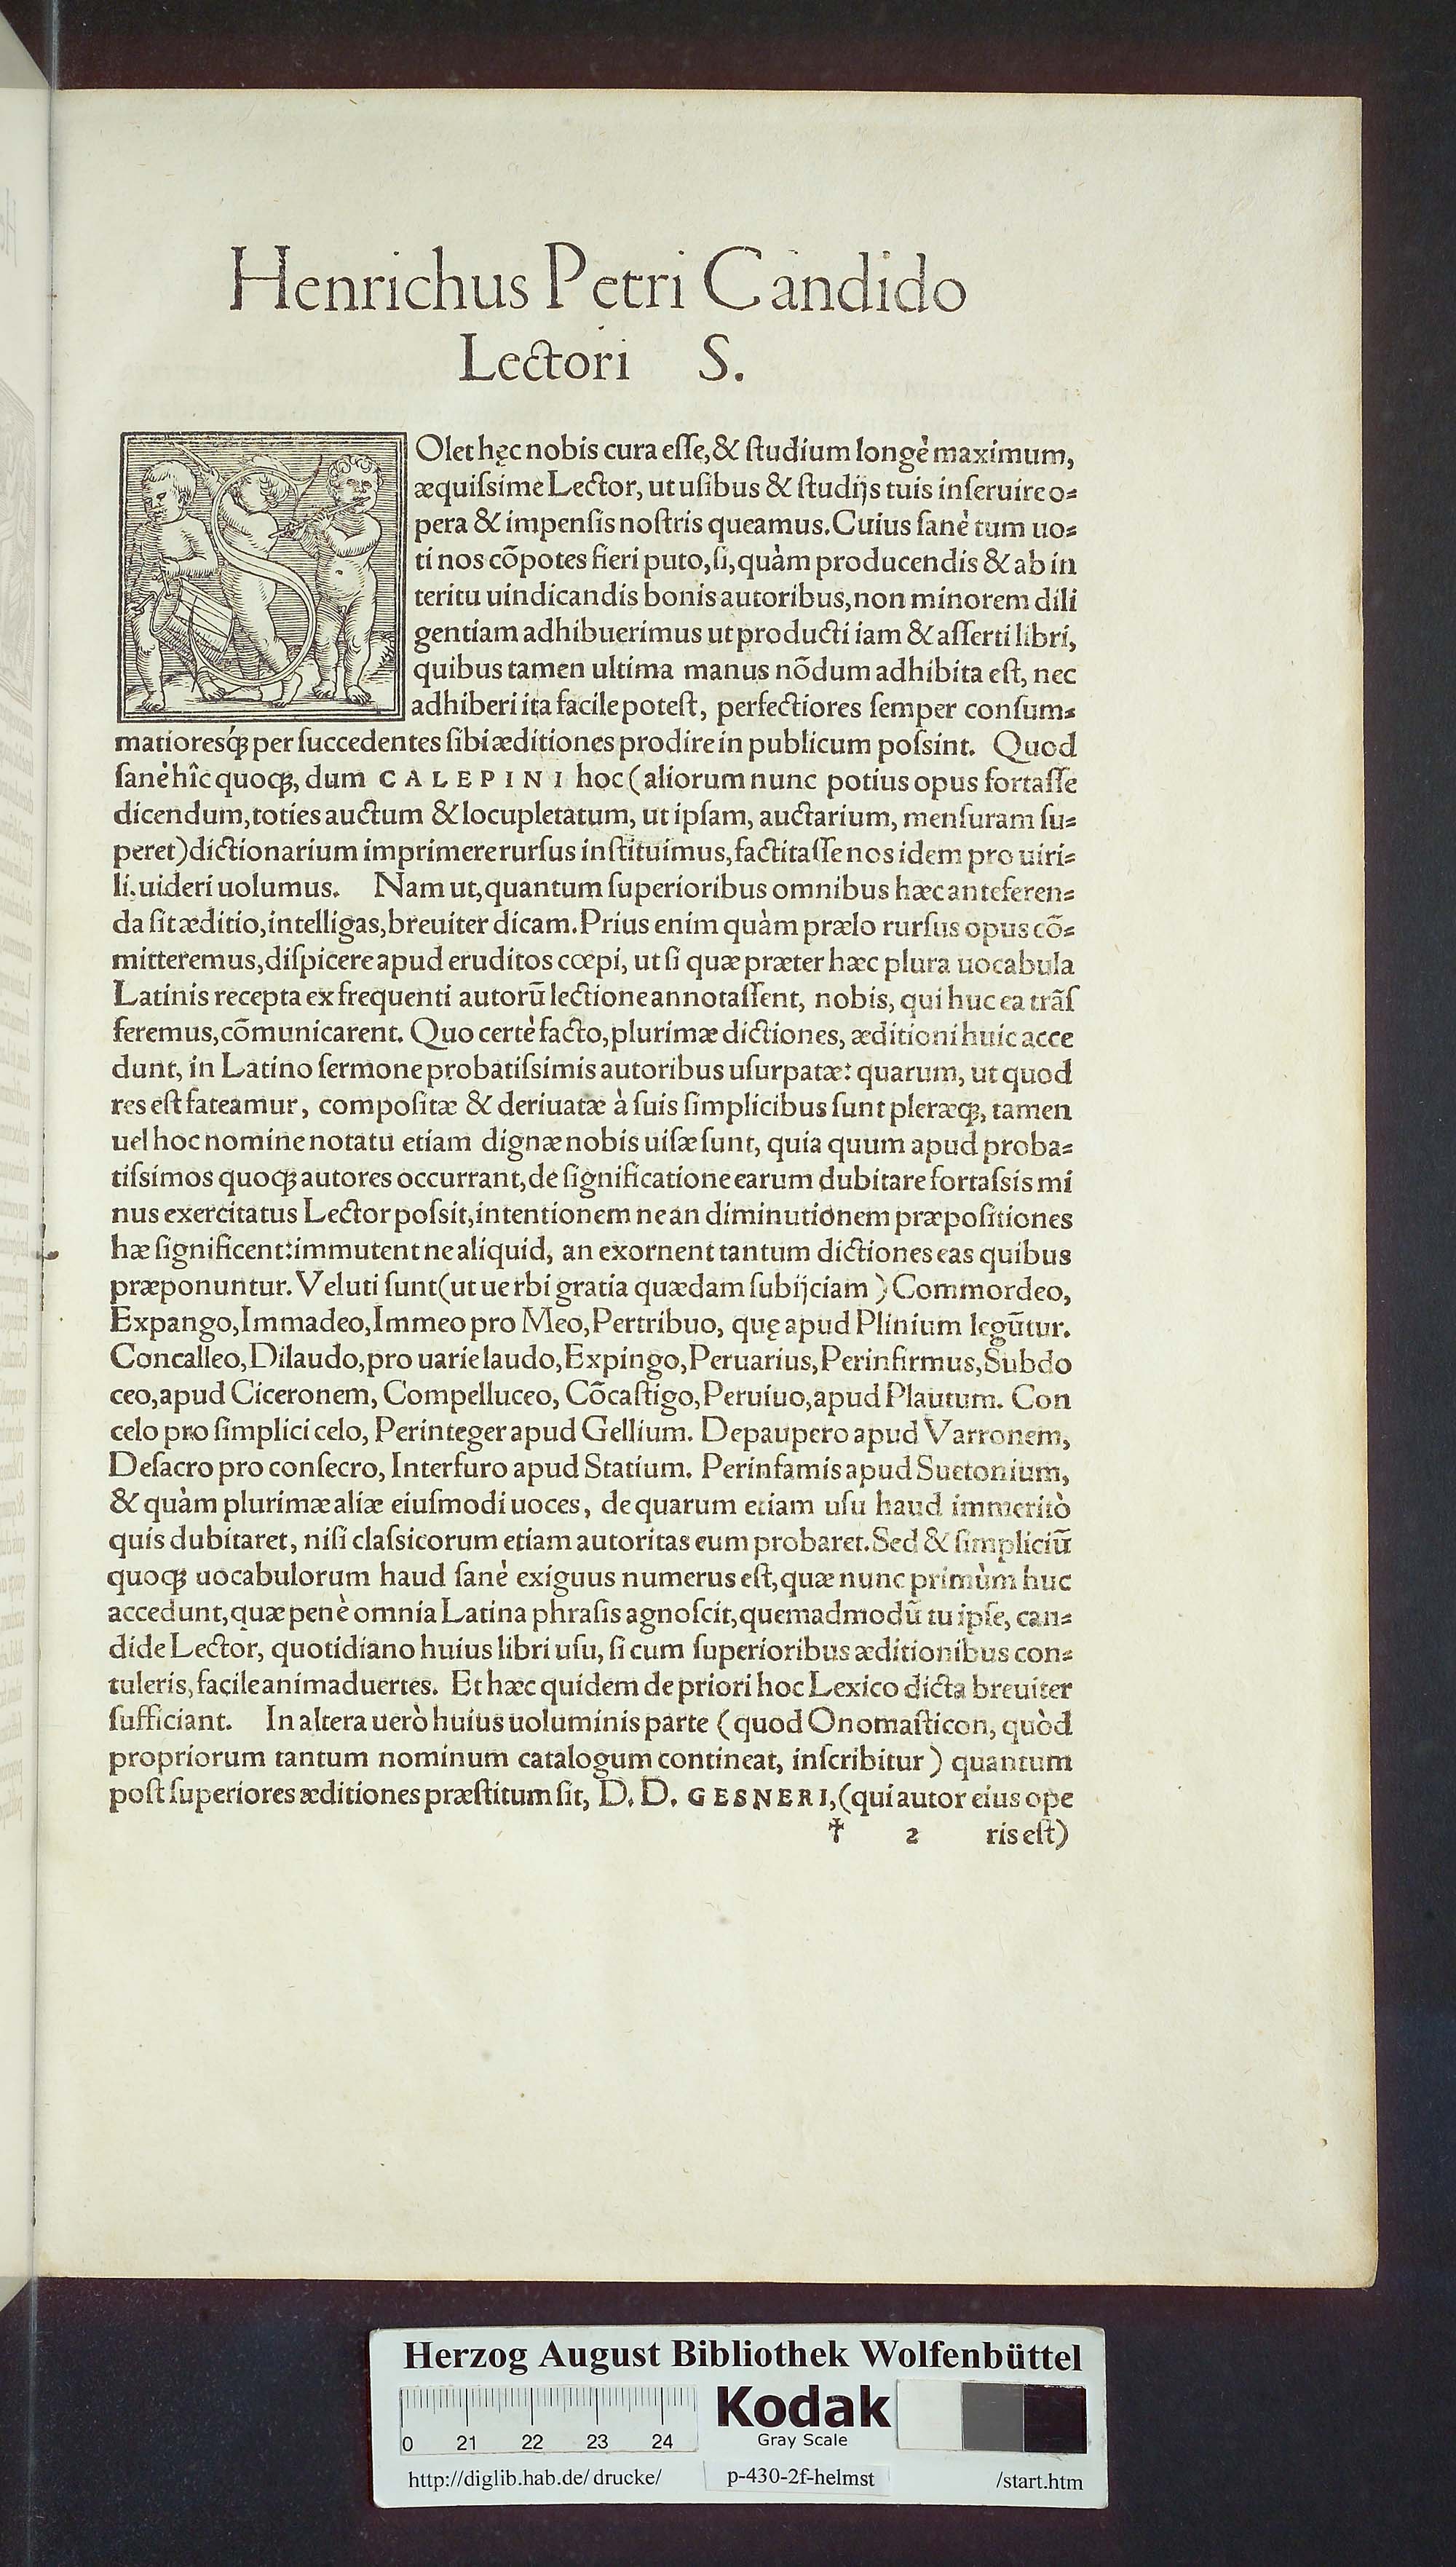 Henrichus Petri Candido
Lectori S.
SOlet hęc nobis cura eſſe, & ſtudium longè maximum,
æquiſsime Lector, ut uſibus & ſtudijs tuis inſeruire o⸗
pera & impenſis noſtris queamus. Cuius ſanè tum uo⸗
ti nos cõpotes fieri puto, ſi, quàm producendis & ab in
teritu uindicandis bonis autoribus, non minorem dili
gentiam adhibuerimus ut producti iam & aſſerti libri,
quibus tamen ultima manus nõdum adhibita eſt, nec
adhiberi ita facile poteſt, perfectiores ſemper conſum⸗
matioresq́ꝫ per ſuccedentes ſibi æditiones prodire in publicum poſsint. Quod
ſanè hîc quoqꝫ, dum CALEPINI hoc (aliorum nunc potius opus fortaſſe
dicendum, toties auctum & locupletatum, ut ipſam, auctarium, menſuram ſu⸗
peret) dictionarium imprimere rurſus inſtituimus, factitaſſe nos idem pro uiri⸗
li, uideri uolumus. Nam ut, quantum ſuperioribus omnibus hæc anteferen⸗
da ſit æditio, intelligas, breuiter dicam. Prius enim quàm prælo rurſus opus cõ⸗
mitteremus, diſpicere apud eruditos cœpi, ut ſi quæ præter hæc plura uocabula
Latinis recepta ex frequenti autorũ lectione annotaſſent, nobis, qui huc ea trãſ
feremus, cõmunicarent. Quo certè facto, plurimæ dictiones, æditioni huic acce
dunt, in Latino ſermone probatiſsimis autoribus uſurpatæ: quarum, ut quod
res eſt fateamur, compoſitæ & deriuatæ à ſuis ſimplicibus ſunt pleræqꝫ, tamen
uel hoc nomine notatu etiam dignæ nobis uiſæ ſunt, quia quum apud proba⸗
tiſsimos quoqꝫ autores occurrant, de ſignificatione earum dubitare fortaſsis mi
nus exercitatus Lector poſsit, intentionem ne an diminutionem præpoſitiones
hæ ſignificent: immutent ne aliquid, an exornent tantum dictiones eas quibus
præponuntur. Veluti ſunt (ut uerbi gratia quædam ſubijciam) Commordeo,
Expango, Immadeo, Immeo pro Meo, Pertribuo, quę apud Plinium legũtur.
Concalleo, Dilaudo, pro uarie laudo, Expingo, Peruarius, Perinfirmus, Subdo
ceo, apud Ciceronem, Compelluceo, Cõcaſtigo, Peruiuo, apud Plautum. Con
celo pro ſimplici celo, Perinteger apud Gellium. Depaupero apud Varronem,
Deſacro pro conſecro, Interfuro apud Statium. Perinfamis apud Suetonium,
& quàm plurimæ aliæ eiuſmodi uoces, de quarum etiam uſu haud immeritò
quis dubitaret, niſi claſsicorum etiam autoritas eum probaret. Sed & ſimpliciũ
quoqꝫ uocabulorum haud ſanè exiguus numerus eſt, quæ nunc primùm huc
accedunt, quæ penè omnia Latina phraſis agnoſcit, quemadmodũ tu ipſe, can⸗
dide Lector, quotidiano huius libri uſu, ſi cum ſuperioribus æditionibus con⸗
tuleris, facile animaduertes. Et hæc quidem de priori hoc Lexico dicta breuiter
ſufficiant. In altera uerò huius uoluminis parte (quod Onomaſticon, quòd
propriorum tantum nominum catalogum contineat, inſcribitur) quantum
poſt ſuperiores æditiones præſtitum ſit, D. D. GESNERI, (qui autor eius ope
† 2 ris eſt)
Herzog August Bibliothek Wolfenbüttel
Kodak
Gray Scale
0 21 22 23 24
http://diglib.hab.de/drucke/ p-430-2f-helmst /start.htm